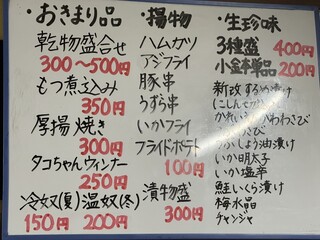 ・おきまり品
乾物盛合せ
300〜500円
もつ煮込み
350円
厚揚焼き
300円
タコちゃんウィンナー
250円
冷奴(夏)温奴(冬)
150円 200円
・揚物
ハムカツ
アジフライ
豚串
うずら串
いかフライ
フライドポテト
100円
漬物盛
300円
・生珍味
3種盛 400円
小鉢単品 200円
いか明太子
いか塩辛
鮭いくら漬け
梅水晶
チャンジャ